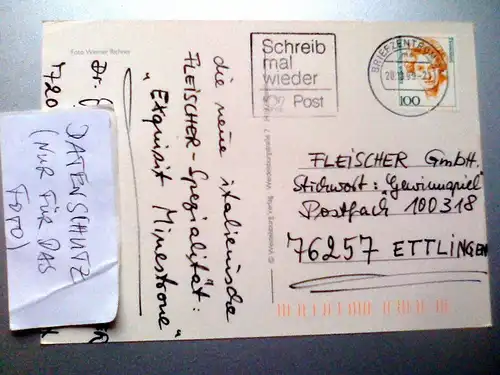 Foto Werner Richner
Dr.
720
DATENSCHUTZ
(NUR FÜR DAS
FOTO)
die neue italienische
FLEISCHER-Spezialität:
"Exquisit Minestrone"
Schreib
mal
wieder
Post
BRIEFZENTRUM
100
FLEISCHER GmbH.
Stichwort: "Gewinnspiel"
Postfach 100318
76257 ETTLINGEN